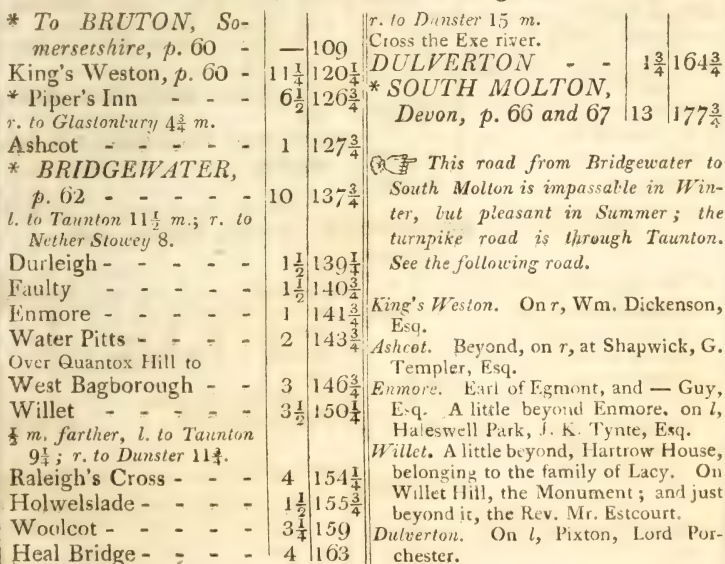 * To BRUTON, So-
mersetshire, p. 60 - — 109
King's Weston, p. 60 - 11¼ 120¼
* Piper's Inn - - - 6½ 126¾
r. to Glastonbury 4¾ m.
Ashcot - - - - - 1 127¾
* BRIDGEWATER,
p. 62 - - - - - 10 137¾
l. to Taunton 11½ m.; r. to
Nether Stowey 8.
Durleigh - - - - 1½ 139¼
Faulty - - - - 1½ 140¾
Enmore - - - - 1 141¾
Water Pitts - - - - 2 143¾
Over Quantox Hill to
West Bagborough - - 3 146¾
Willet - - - - - 3½ 150¼
½ m. farther, l. to Taunton
9¼; r. to Dunster 11¾.
Raleigh's Cross - - - 4 154¼
Holwelslade - - - - 1½ 155¾
Woolcot - - - - - 3¼ 159
Heal Bridge - - - - 4 163
r. to Dunster 15 m.
Cross the Exe river.
DULVERTON - - 1¾ 164¾
* SOUTH MOLTON,
Devon, p. 66 and 67 13 177¾
☞ This road from Bridgewater to
South Molton is impassable in Win-
ter, but pleasant in Summer; the
turnpike road is through Taunton.
See the following road.
King's Weston. On r, Wm. Dickenson,
Esq.
Ashcot. Beyond, on r, at Shapwick, G.
Templer, Esq.
Enmore. Earl of Egmont, and — Guy,
Esq. A little beyond Enmore, on l,
Haleswell Park, J. K. Tynte, Esq.
Willet. A little beyond, Hartrow House,
belonging to the family of Lacy. On
Willet Hill, the Monument; and just
beyond it, the Rev. Mr. Estcourt.
Dulverton. On l, Pixton, Lord Por-
chester.